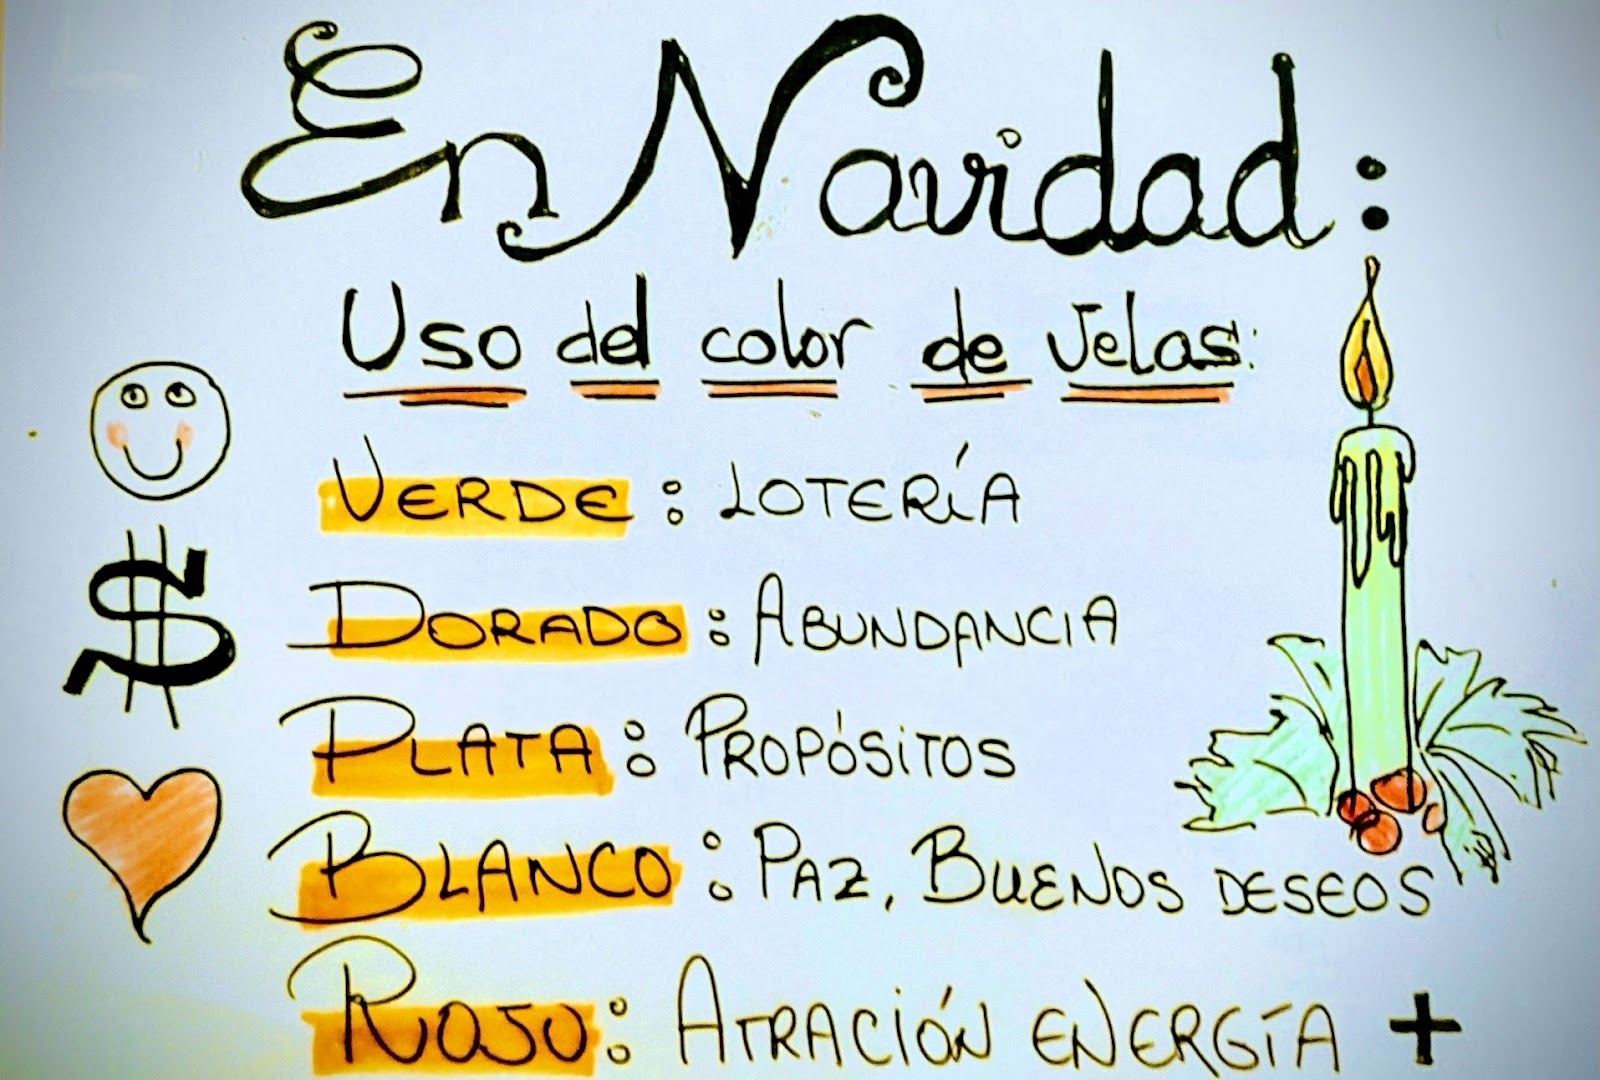 En Navidad:
Uso del color de velas:
VERDE: LOTERÍA
DORADO: ABUNDANCIA
PLATA: PROPÓSITOS
BLANCO: PAZ, BUENOS DESEOS
ROJO: ATRACIÓN ENERGÍA +
$